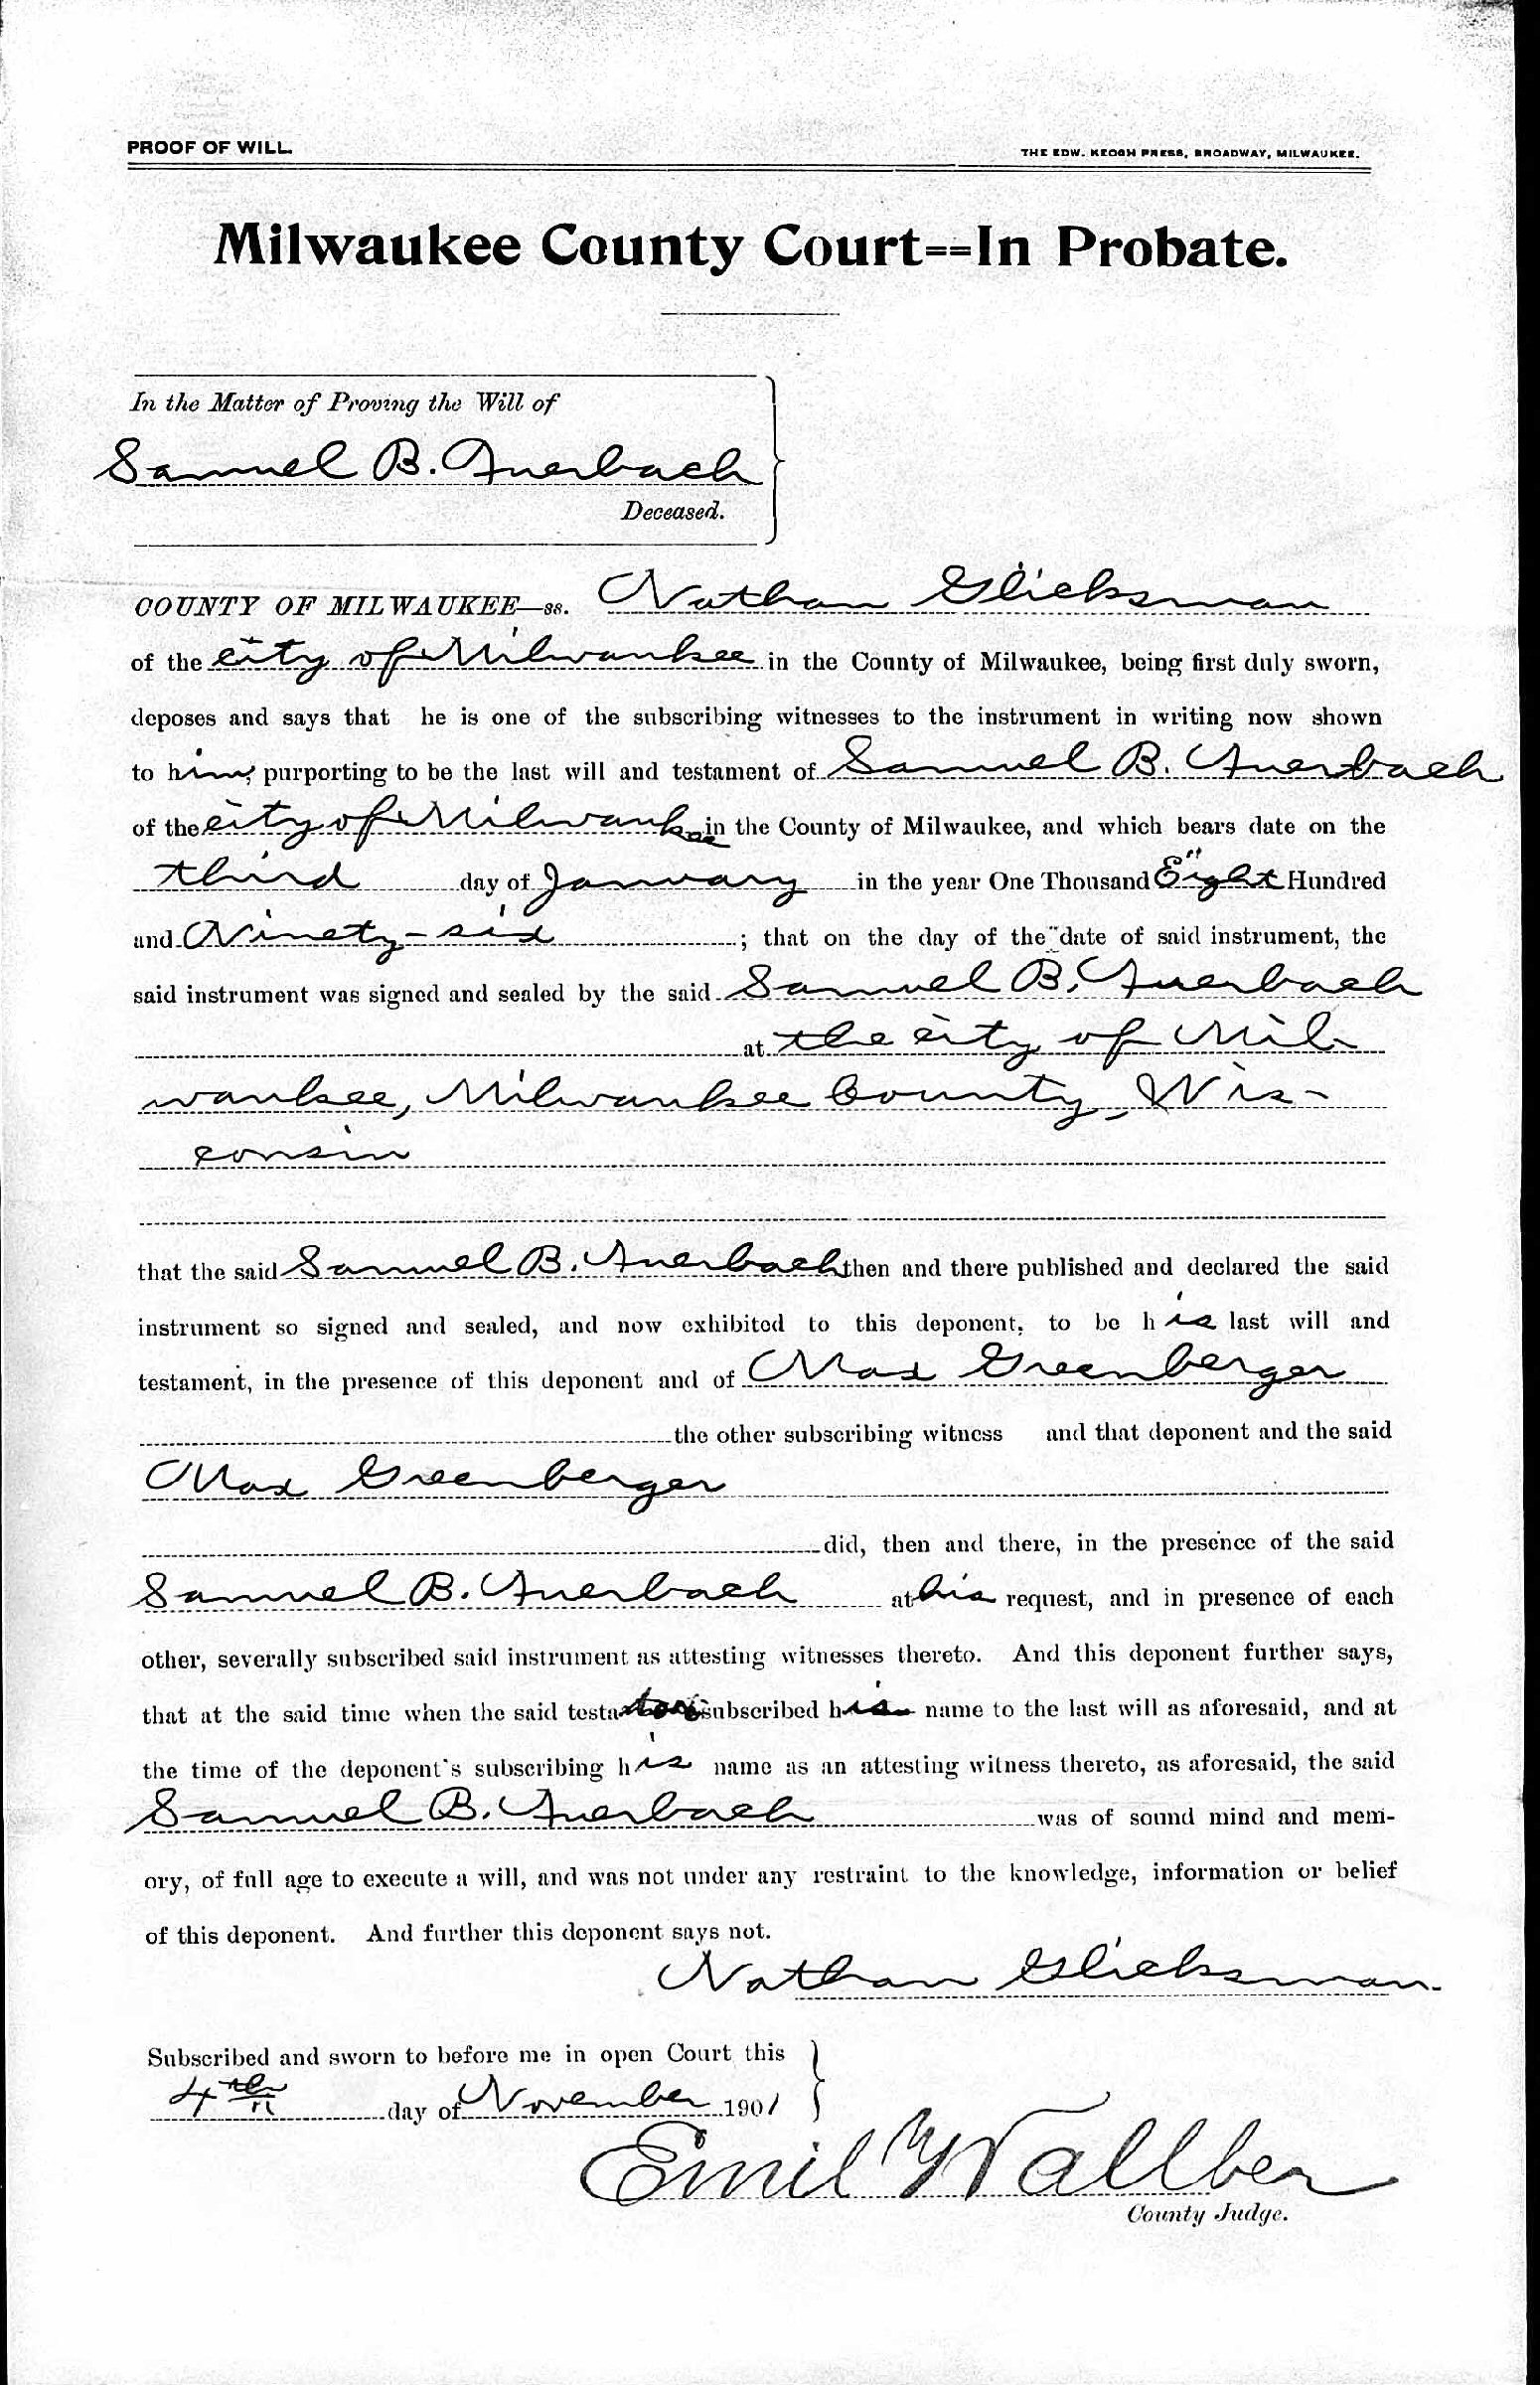 PROOF OF WILL.
THE EDW. KEOGH PRESS, BROADWAY, MILWAUKEE.
Milwaukee County Court==In Probate.
In the Matter of Proving the Will of
Samuel B. Auerbach
Deceased.
COUNTY OF MILWAUKEE—ss. Nathan Glicksman
of the city of Milwaukee in the County of Milwaukee, being first duly sworn,
deposes and says that he is one of the subscribing witnesses to the instrument in writing now shown
to him, purporting to be the last will and testament of Samuel B. Auerbach
of the city of Milwaukee in the County of Milwaukee, and which bears date on the
third day of January in the year One Thousand Eight Hundred
and Ninety-six ; that on the day of the date of said instrument, the
said instrument was signed and sealed by the said Samuel B. Auerbach
at the city of Mil-
waukee, Milwaukee County, Wis-
consin
that the said Samuel B. Auerbach then and there published and declared the said
instrument so signed and sealed, and now exhibited to this deponent, to be his last will and
testament, in the presence of this deponent and of Max Greenberger
the other subscribing witness and that deponent and the said
Max Greenberger
did, then and there, in the presence of the said
Samuel B. Auerbach at his request, and in presence of each
other, severally subscribed said instrument as attesting witnesses thereto. And this deponent further says,
that at the said time when the said testator subscribed his name to the last will as aforesaid, and at
the time of the deponent's subscribing his name as an attesting witness thereto, as aforesaid, the said
Samuel B. Auerbach was of sound mind and mem-
ory, of full age to execute a will, and was not under any restraint to the knowledge, information or belief
of this deponent. And further this deponent says not.
Nathan Glicksman.
Subscribed and sworn to before me in open Court this
4th day of November 1901
Emil Wallber
County Judge.